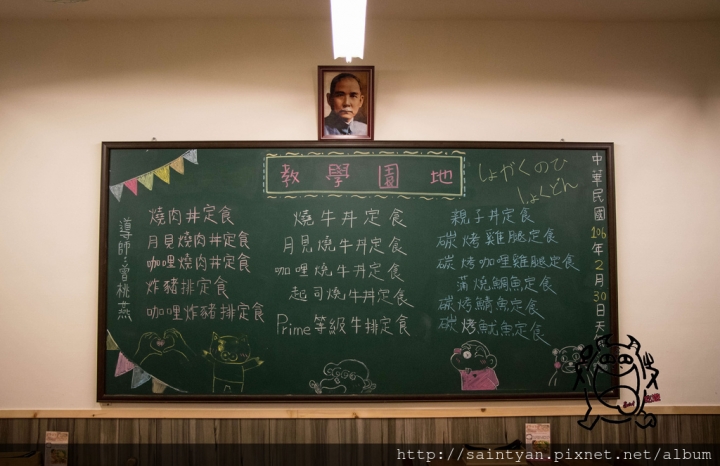 教學園地
しょがくのひ
しょくどん
導師：曾桃燕
燒肉丼定食
月見燒肉丼定食
咖哩燒肉丼定食
炸豬排定食
咖哩炸豬排定食
燒牛丼定食
月見燒牛丼定食
咖哩燒牛丼定食
起司燒牛丼定食
Prime等級牛排定食
親子丼定食
碳烤雞腿定食
碳烤咖哩雞腿定食
蒲燒鯛魚定食
碳烤鯖魚定食
碳烤魷魚定食
中華民國106年2月30日天
http://saintyan.pixnet.net/album